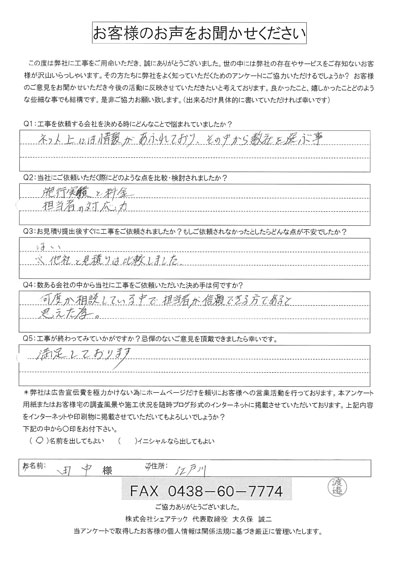 お客様のお声をお聞かせください
この度は弊社に工事をご用命いただき、誠にありがとうございました。世の中には弊社の存在やサービスをご存知ないお客様
が沢山いらっしゃいます。その方たちに弊社をよく知っていただくためのアンケートにご協力いただけるでしょうか? お客様
のご意見をお聞かせいただき今後の活動に反映させていただきたいと考えております。良かったこと、嬉しかったことどのよう
な些細な事でも結構です。是非ご協力お願い致します。(出来るだけ具体的に書いていただければ幸いです)
Q1:工事を依頼する会社を決める時にどんなことで悩まれていましたか?
ネット上には情報があふれており、その中から数社を選ぶ事
Q2:当社にご依頼いただく際にどのような点を比較・検討されましたか?
施行実績と料金
担当者の対応力
Q3:お見積り提出後すぐに工事をご依頼されましたか?もしご依頼されなかったとしたらどんな点が不安でしたか?
はい
※他社と見積りは比較しました
Q4:数ある会社の中から当社に工事をご依頼いただいた決め手は何ですか?
何度か相談している中で担当者が信頼できる方であると
思えた為。
Q5:工事が終わってみていかがですか?忌憚のないご意見を頂戴できましたら幸いです。
満足しております
*弊社は広告宣伝費を極力かけない為にホームページだけを頼りにお客様への営業活動を行っております。本アンケート
用紙またはお客様宅の調査風景や施工状況を随時ブログ形式のインターネットに掲載させていただいております。上記内容
をインターネットや印刷物に掲載させていただいてもよろしいでしょうか?
下記の中から○印をお付下さい。
(○)名前を出してもよい ( )イニシャルなら出してもよい
お名前: 田中 様 ご住所: 江戸川
FAX 0438-60-7774
渡邉
ご協力ありがとうございました。
株式会社シェアテック 代表取締役 大久保 誠二
当アンケートで取得したお客様の個人情報は関係法規に基づき厳正に管理いたします。